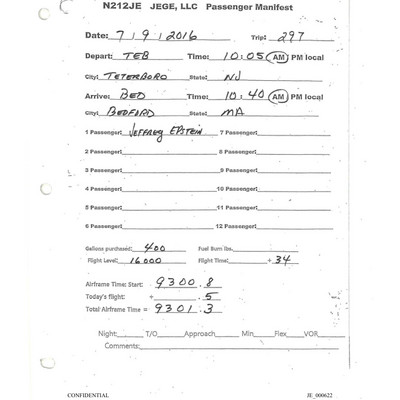 N212JE JEGE, LLC Passenger Manifest
Date: 7/9/2016 Trip: 297
Depart: TEB Time: 10:05 AM PM local
City: TETERBORO State: NJ
Arrive: BED Time: 10:40 AM PM local
City: BEDFORD State: MA
1 Passenger: JEFFREY EPSTEIN 7 Passenger:
2 Passenger: 8 Passenger:
3 Passenger: 9 Passenger:
4 Passenger: 10 Passenger:
5 Passenger: 11 Passenger:
6 Passenger: 12 Passenger:
Gallons purchased: 400 Fuel Burn lbs.
Flight Level: 16000 Flight Time: +34
Airframe Time: Start: 9300.8
Today's flight: + .5
Total Airframe Time = 9301.3
Night: T/O Approach Min Flex VOR
Comments:
CONFIDENTIAL JE_000622